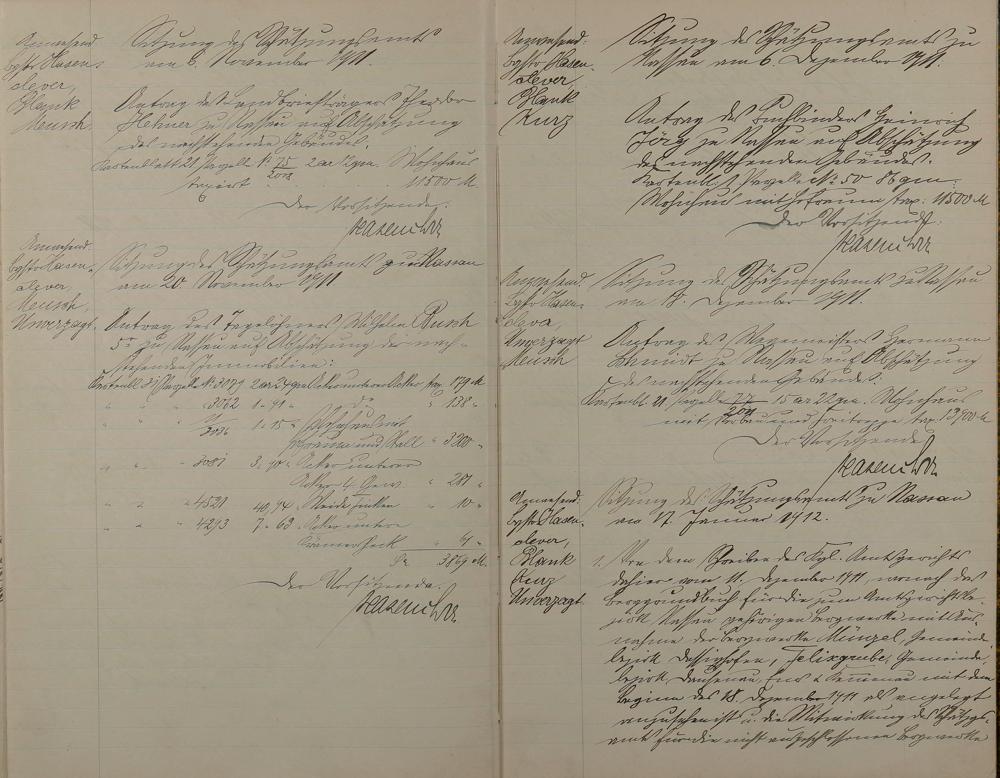 Anwesend
Bgstr. Hasen-
clever,
Plank
Meusch.
Sitzung des Schätzungsamts
am 6. November 1911.
Antrag des Landbriefträgers Theodor
Hehner zu Nassau auf Abschätzung
des nachstehenden Gebäudes.
Kartenblatt 21 Parzelle N° 75/2018 2 ar 12 qm Wohnhaus
taxiert 11500 M.
Der Vorsitzende:
Hasenclever
Anwesend:
Bgstr. Hasen-
clever,
Meusch,
Unverzagt.
Sitzung des Schätzungsamts zu Nassau
am 20 November 1911
Antrag des Tagelöhners Wilhelm Busch
zu Nassau auf Abschätzung der nach-
stehenden Immobilien:
Parzelle N° 3079 2 ar 54 qm Acker unterm tax. 179 M
" " " 3062 1 " 91 " do " 138 "
" " " 3036 1 " 15 " Wohnhaus mit
Hofraum und Stall " 3200 "
" " " 3081 3 " 90 " Acker unterm
4 Gew " 281 "
" " " 4521 40,94 Weide " 10 "
" " " 4293 7 " 63 Acker unterm
" 61 "
Sa 3869 M.
Der Vorsitzende.
Hasenclever
Anwesend:
Bgstr. Hasen-
clever,
Plank
Kurz
Sitzung des Schätzungsamts zu
Nassau am 6. Dezember 1911.
Antrag des Buchbinders Heinrich
Jörg zu Nassau auf Abschätzung
des nachstehenden Gebäudes.
Kartenbl. Parzelle N° 50 86 qm:
Wohnhaus mit Hofraum tax. 11500 M
Der Vorsitzende:
Hasenclever
Anwesend.
Bgstr. Hasen-
clever,
Unverzagt
Meusch
Sitzung des Schätzungsamts zu Nassau
am Dezember 1911.
Antrag des Hermann
Schmidt zu Nassau auf Abschätzung
des nachstehenden Gebäudes.
Kartenbl. 21 Parzelle 77/2011 15 ar 22 qm. Wohnhaus
mit und Freitreppe tax. 13900 M
Der Vorsitzende
Hasenclever
Anwesend.
Bgstr. Hasen-
clever,
Plank
Kurz
Unverzagt
Sitzung des Schätzungsamts zu Nassau
am 17. Januar 1912.
1. Von dem Schreiben des Kgl. Amtsgerichts
dahier vom 11. Dezember 1911, wonach das
Berggrundbuch für die zum Amtsgerichtsbe-
zirk Nassau gehörigen Bergwerke mit Aus-
nahme der Bergwerke Münzel, Gemeinde-
bezirk Dessighofen, Felixgrube, Gemeinde-
bezirk Dausenau, Ems & Kemmenau mit dem
Beginn des 18. Dezember 1911 als angelegt
anzusehen ist u. die Mitwirkung des Schätzgs-
amts für die nicht angeschlossenen Bergwerke